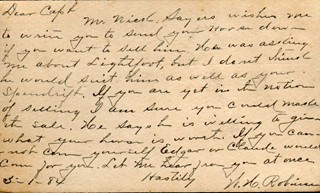 Dear Capt
Mr. Nick Sayers wishes me
to write you to send your Horse down
if you want to sell him. He was asking
me about Lightfoot, but I don't think
he would suit him as well as your
Spendrift. If you are yet in the notion
of selling I am sure you could make
the sale. He says he is willing to give
what your horse is worth. If you can
not come yourself Edgar or Claude would
come for you. Let me hear from you at once
3-1-84 Hastily W. H. Robinson